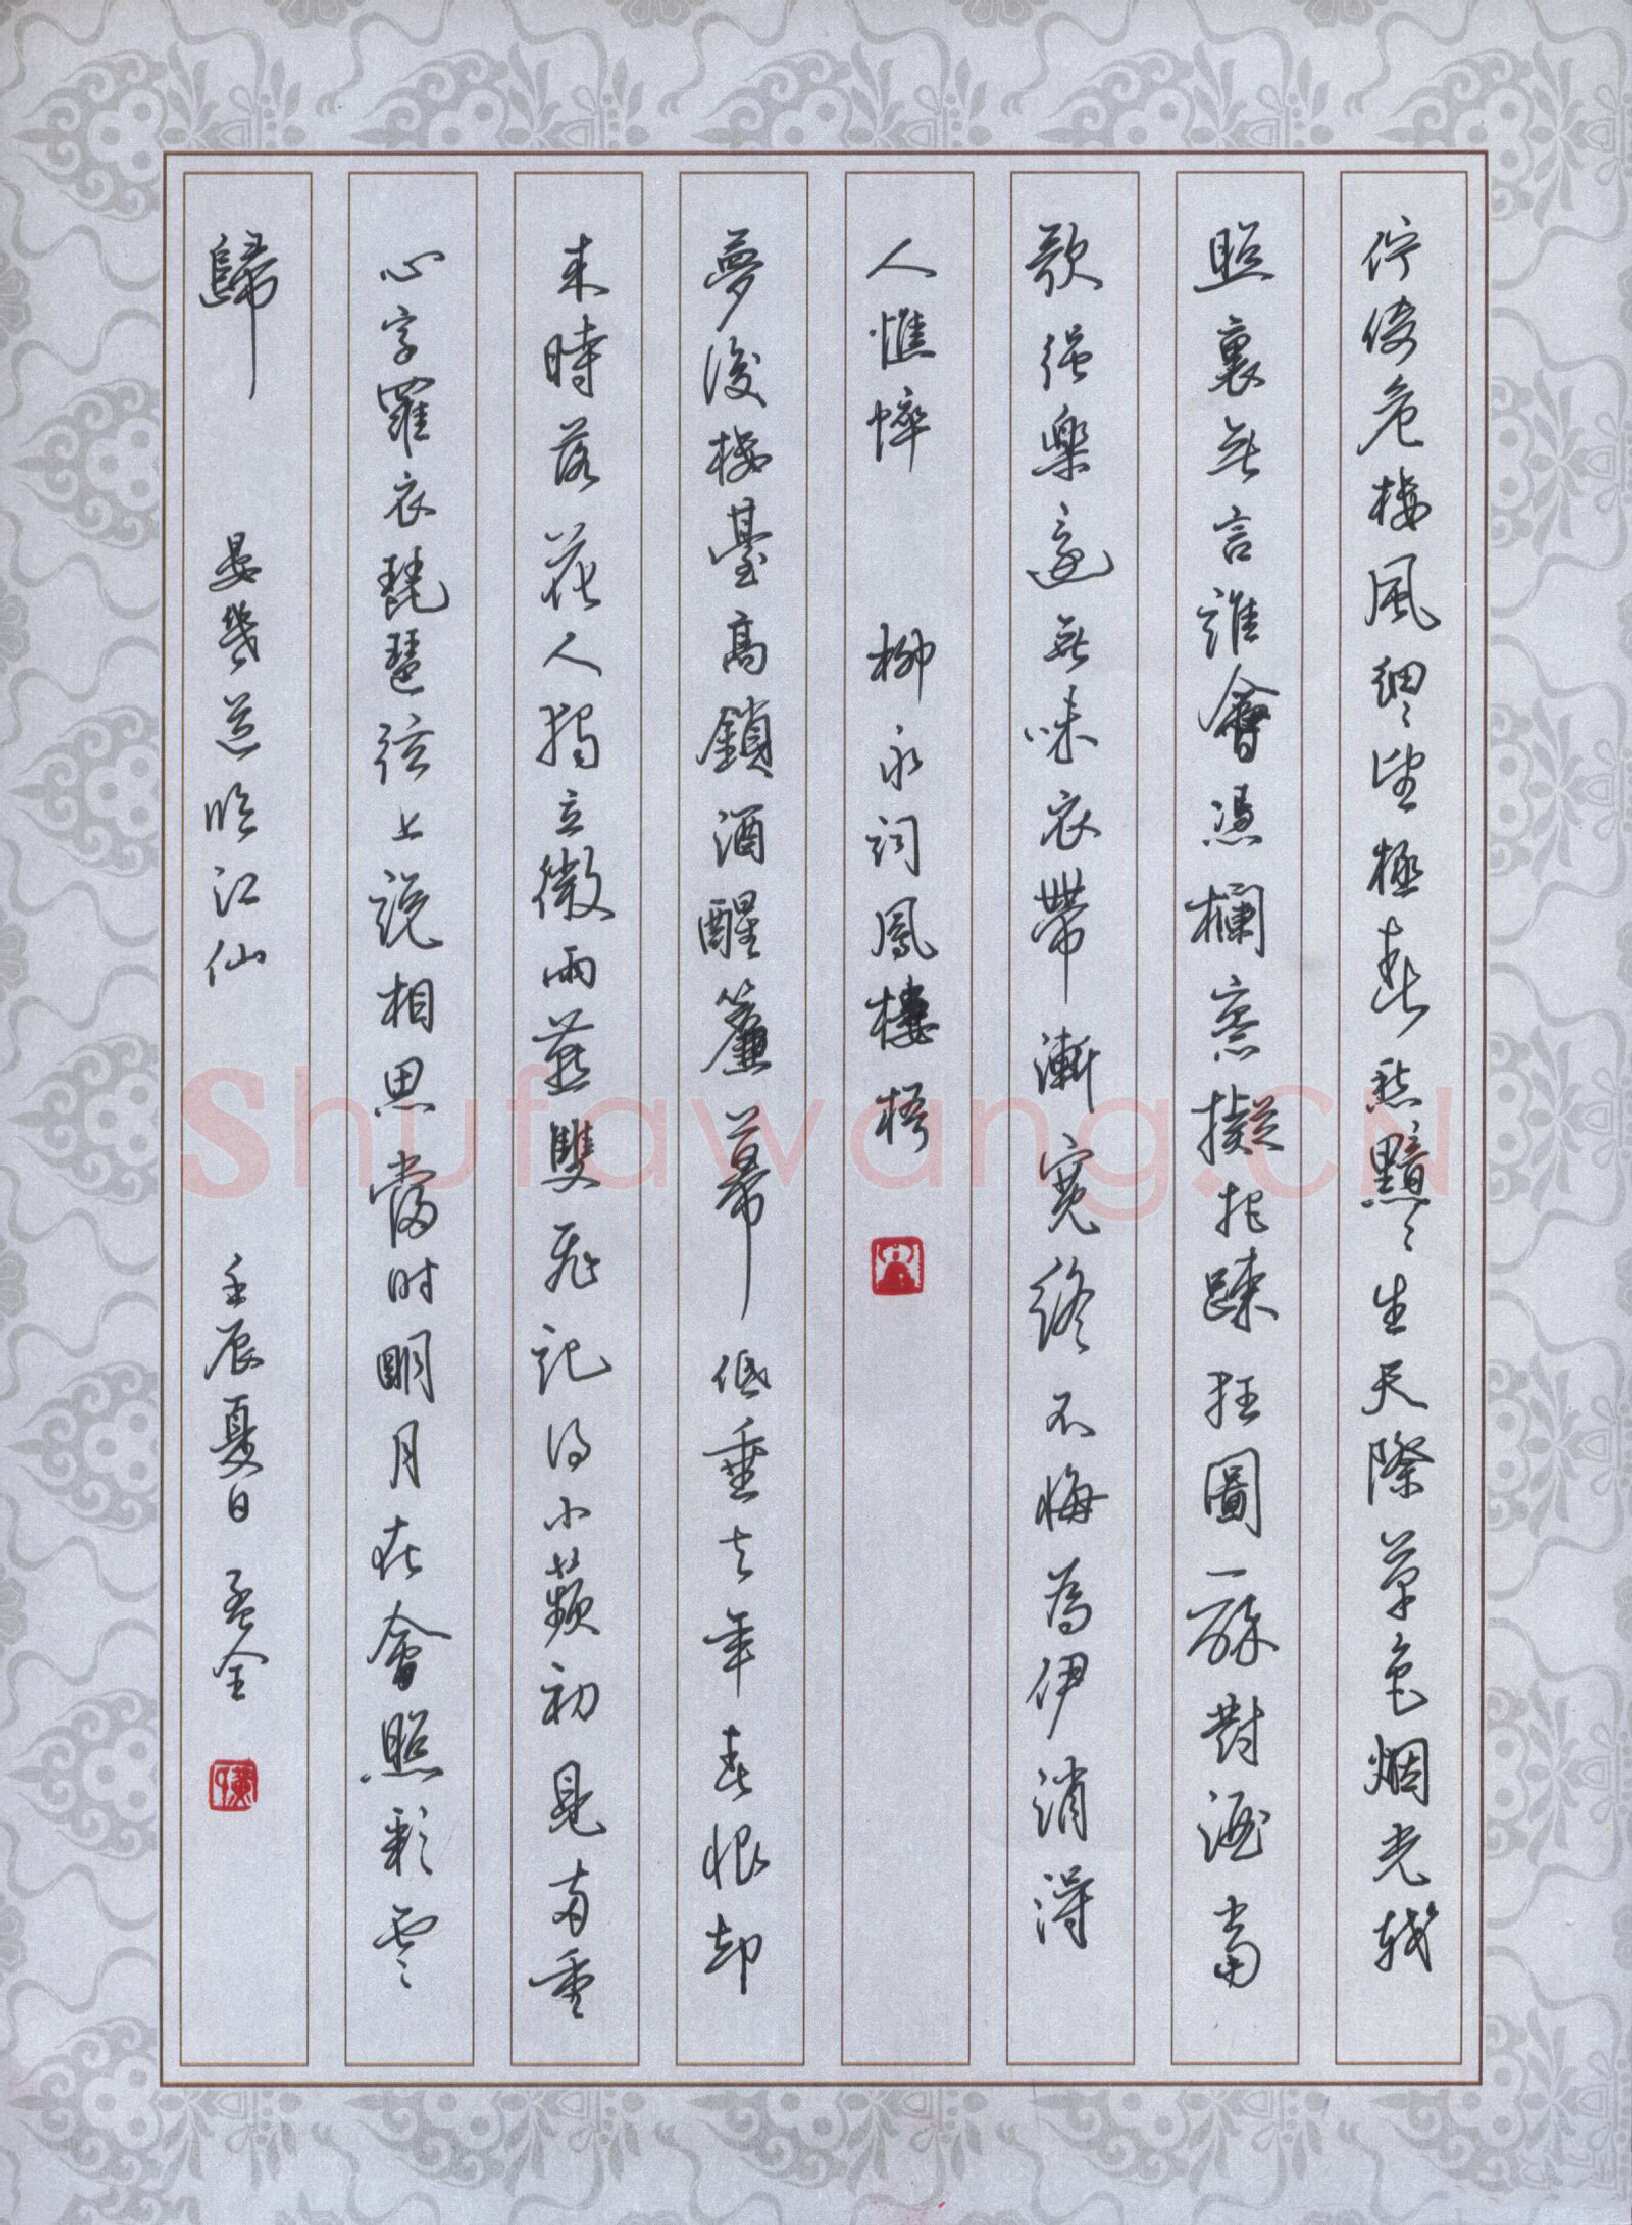 佇倚危楼風細〻望極春愁黯〻生天際草色烟光殘
照裏無言誰會憑欄意擬把疎狂圖一醉對酒當
歌强樂還無味衣帶漸寬終不悔為伊消得
人憔悴 柳永詞鳳棲梧
夢後楼臺高鎖酒醒簾幕低垂去年春恨却
来時落花人獨立微雨燕雙飛記得小蘋初見两重
心字羅衣琵琶弦上説相思當时明月在會照彩雲
歸 晏幾道临江仙 壬辰夏日 孟全
Shufawang.CN